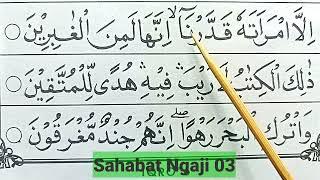 اِلَّا امْرَاَتَهٗ قَدَّرْنَآ ۙ اِنَّهَا لَمِنَ الْغٰبِرِيْنَ
ذٰلِكَ الْكِتٰبُ لَا رَيْبَ ۛ فِيْهِ ۛ هُدًى لِّلْمُتَّقِيْنَ
وَاتْرُكِ الْبَحْرَ رَهْوًا ۗ اِنَّهُمْ جُنْدٌ مُّغْرَقُوْنَ
Sahabat Ngaji 03